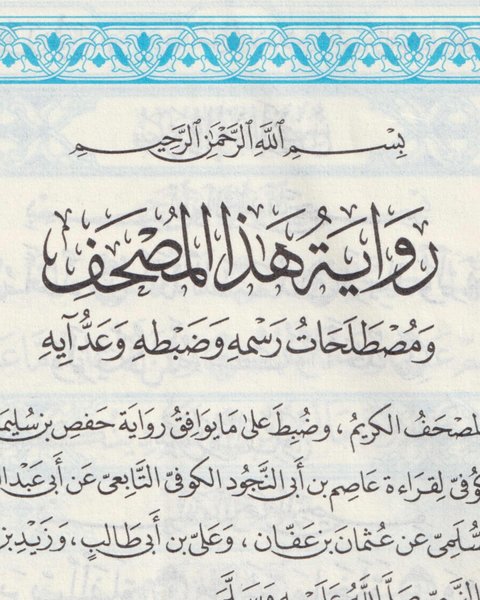 بِسْمِ اللَّهِ الرَّحْمَٰنِ الرَّحِيمِ
رِوَايَةُ هَذَا الْمُصْحَفِ
وَمُصْطَلَحَاتُ رَسْمِهِ وَضَبْطِهِ وَعَدِّ آيِهِ
لمصْحَفُ الكَرِيمُ ، وَضُبِطَ عَلَىٰ مَا يُوَافِقُ رِوَايَةَ حَفْصِ بْنِ سُلَيمَا
كُوفِيِّ لِقِرَاءَةِ عَاصِمِ بْنِ أَبِي النَّجُودِ الكُوفِيِّ التَّابِعِيِّ عَنْ أَبِي عَبْدِ
السُّلَمِيِّ عَنْ عُثْمَانَ بْنِ عَفَّانَ ، وَعَلِيِّ بْنِ أَبِي طَالِبٍ، وَزَيْدِ بْنِ
صَلَّى اللَّهُ عَلَيْهِ وَسَلَّمَ